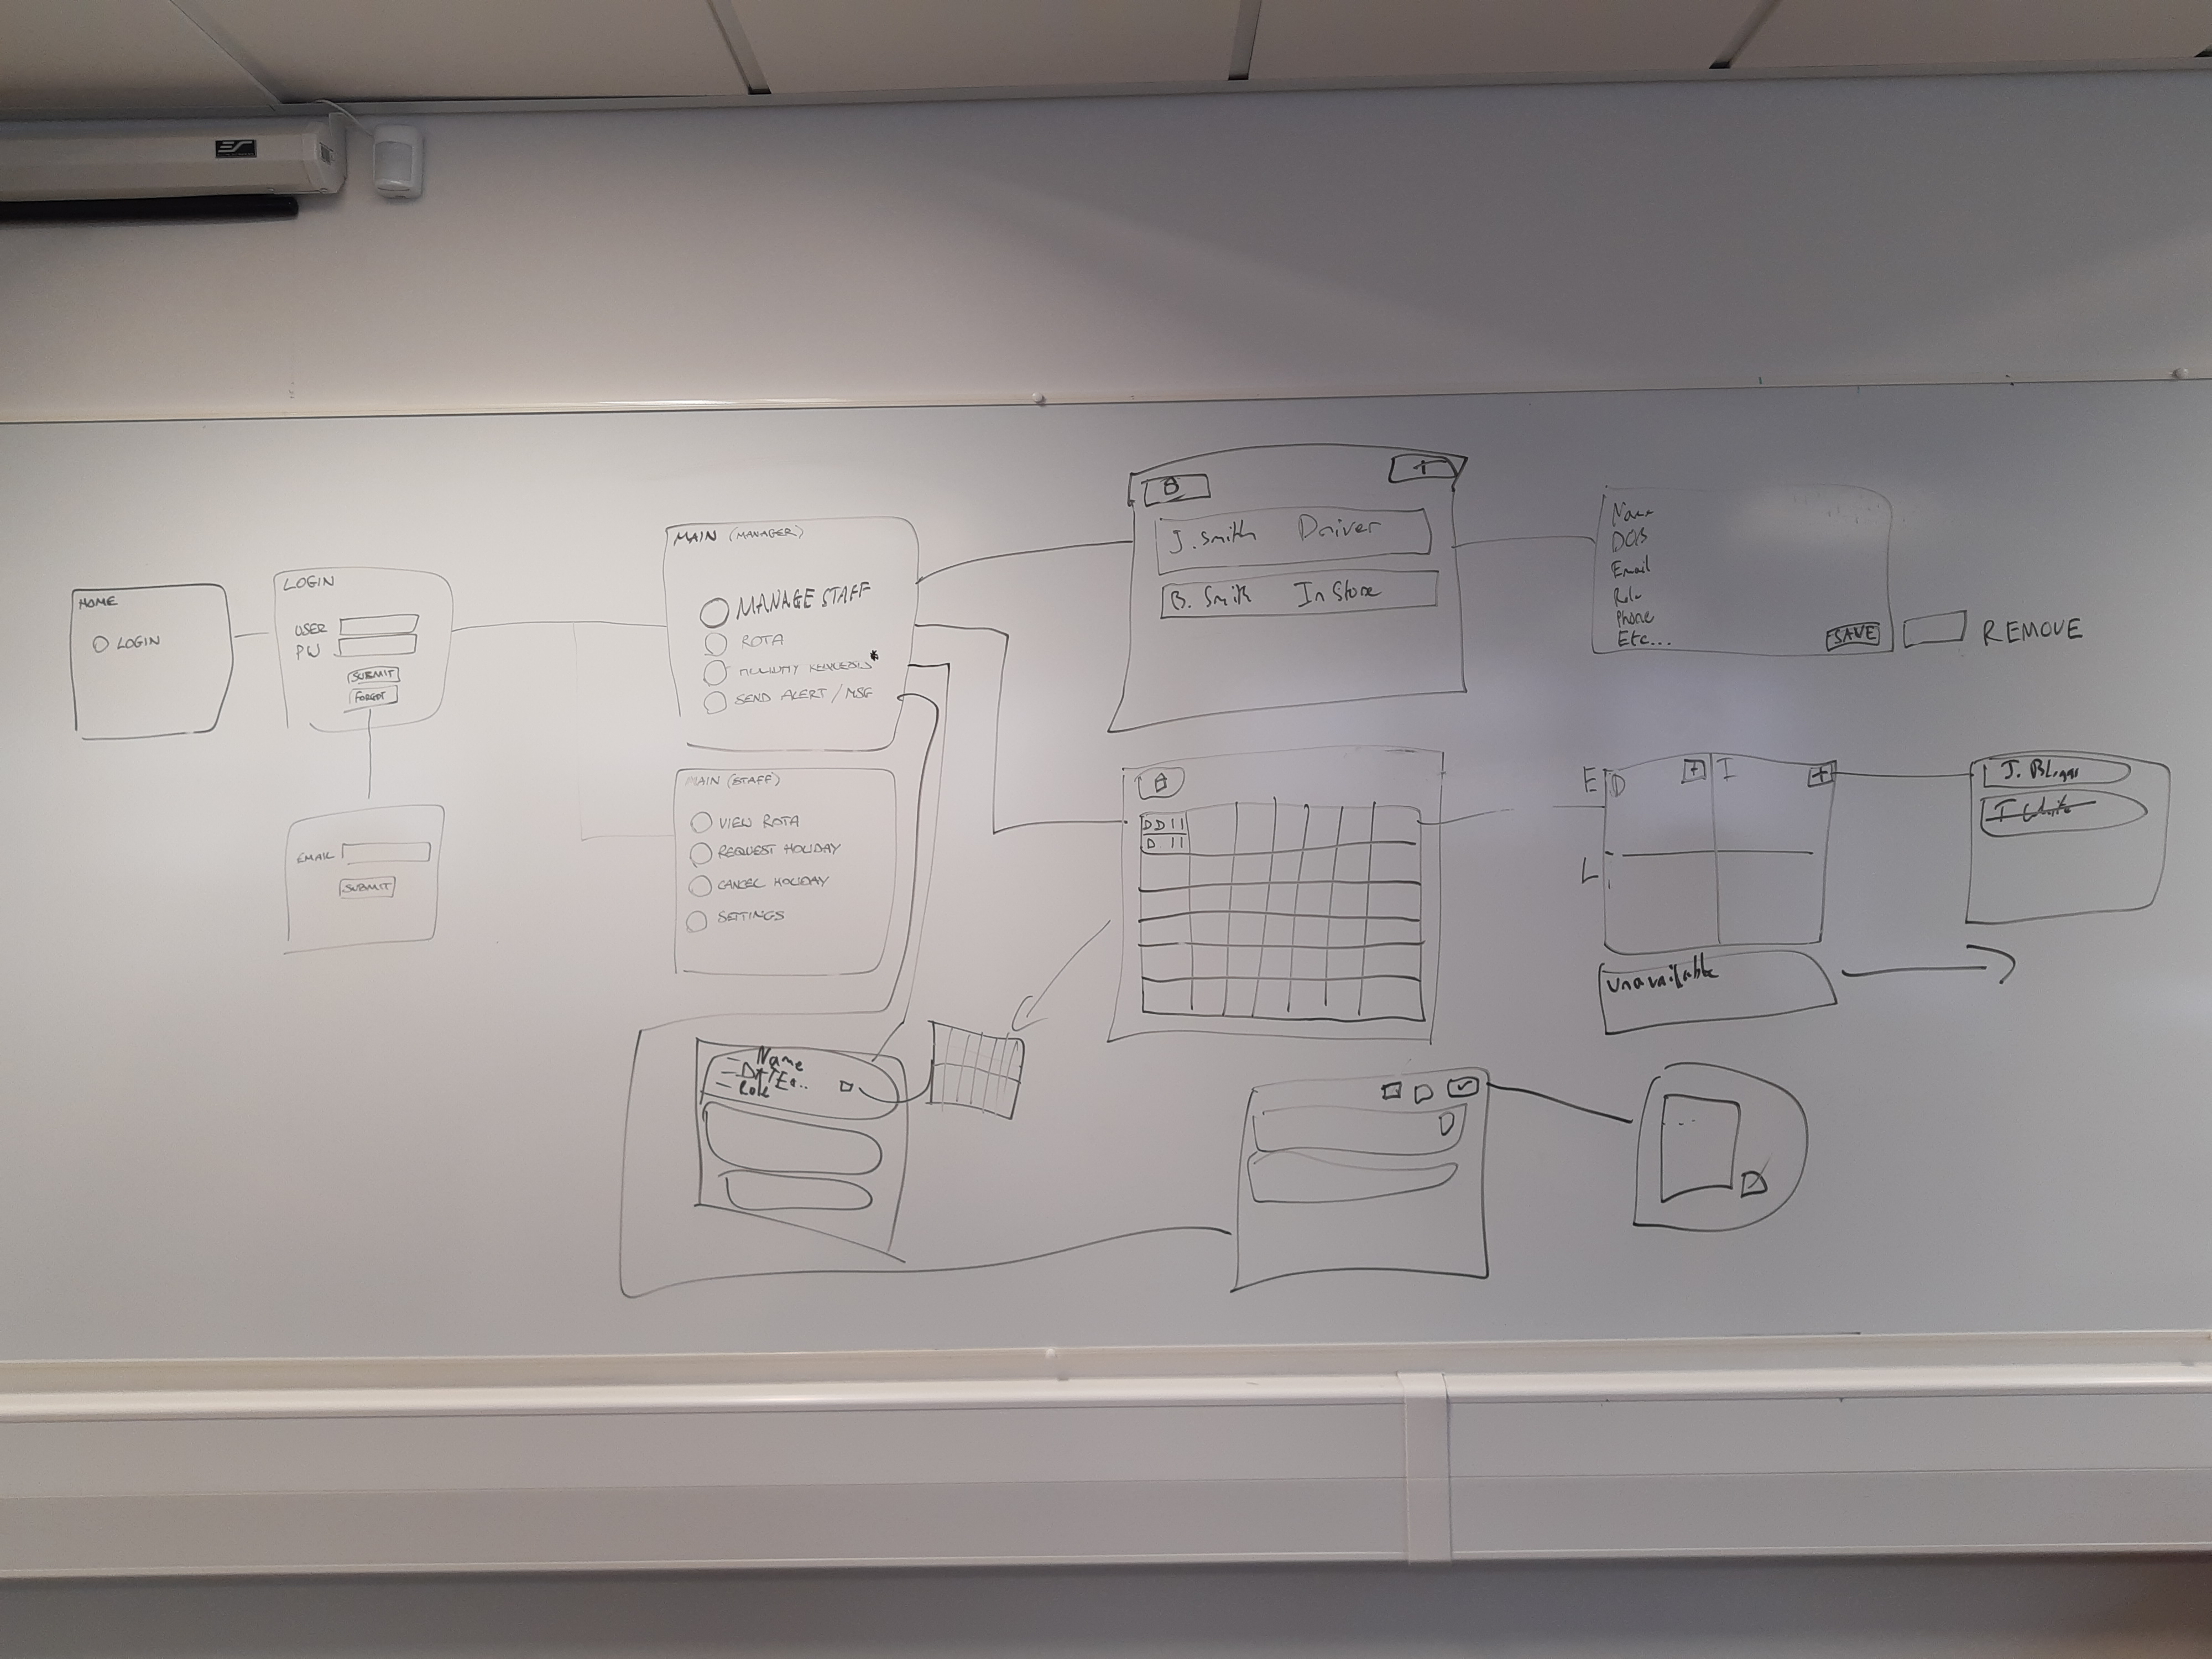 ES
HOME
LOGIN
LOGIN
USER
PW
SUBMIT
FORGOT
EMAIL
SUBMIT
MAIN (MANAGER)
MANAGE STAFF
ROTA
HOLIDAY REQUESTS*
SEND ALERT / MSG
MAIN (STAFF)
VIEW ROTA
REQUEST HOLIDAY
CANCEL HOLIDAY
SETTINGS
+
J. Smith Driver
B. Smith In Store
Name
DOB
Email
Role
Phone
Etc...
SAVE
REMOVE
D D I I
D I I
E D + I +
L
Unavailable
J. Bloggs
- Name
- Role